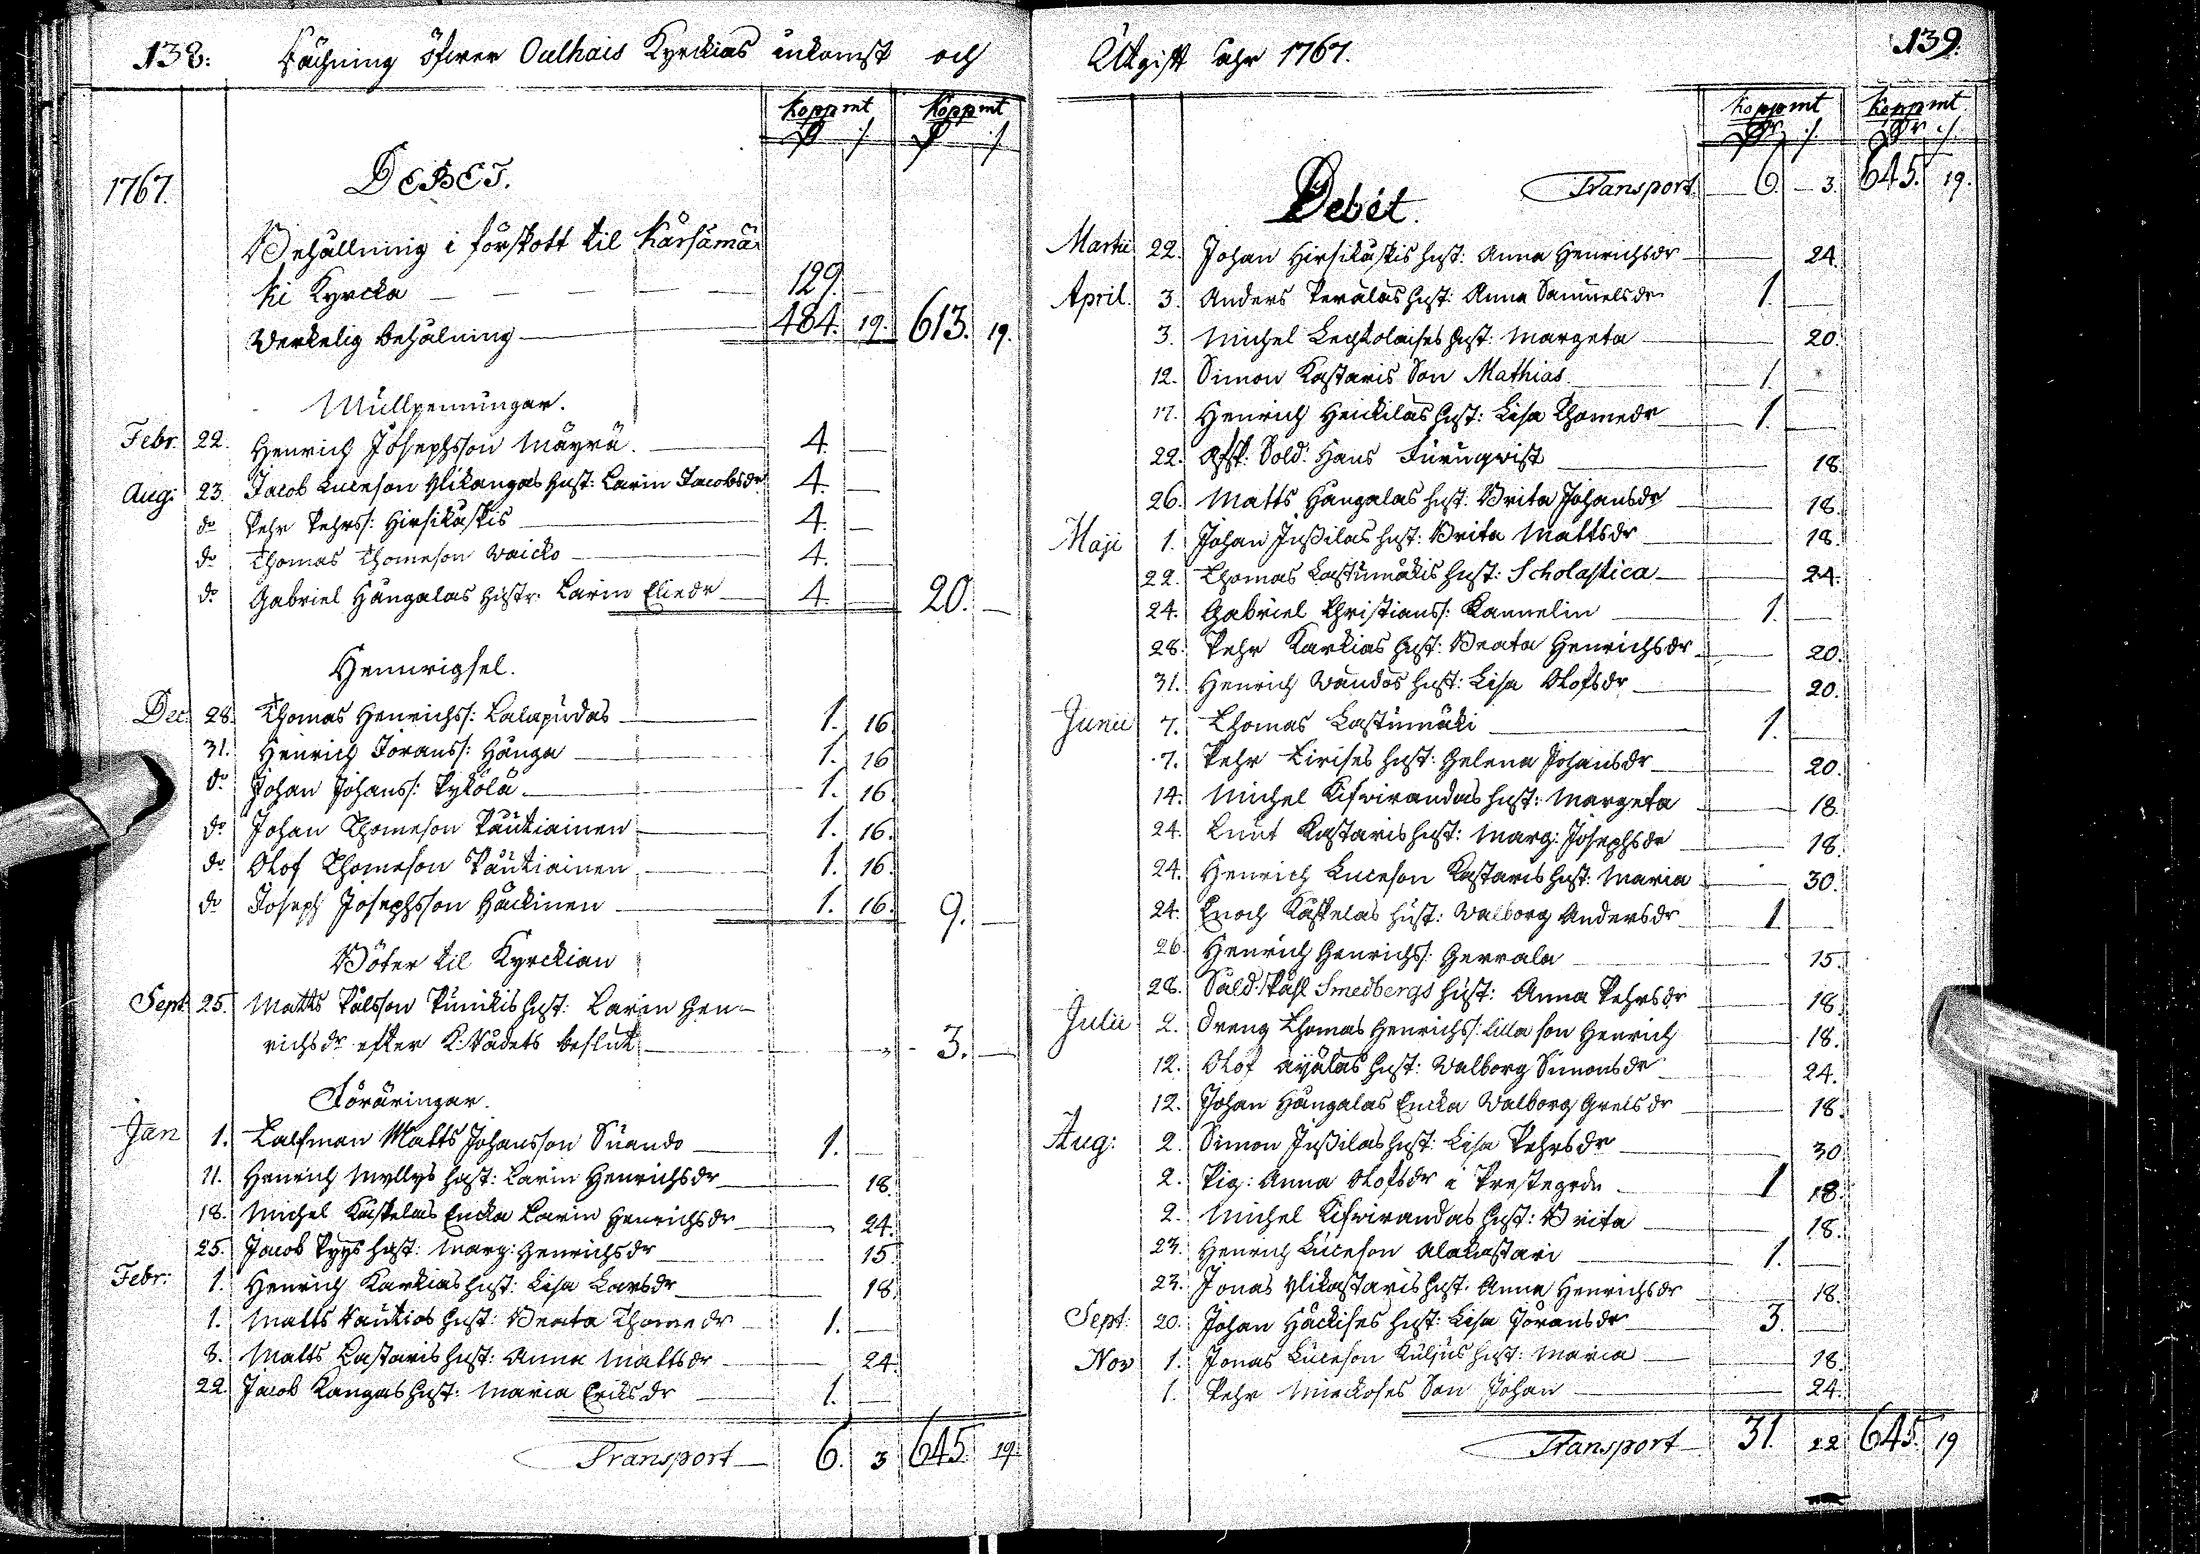 138. Räckning öfwer Oulhais Kyrckias inkomst och
Koppmt Koppmt
1767. DEBET.
Behållning i förskott til Kärsämä
ki Kyrcka 129.
Werkelig behålning 484. 19. 613. 19.
Mullpenningar.
Febr. 22. Henrich Josephsson Mäyrä. 4.
Aug: 23. Jacob Lucæson Ylikangas hust: Carin Jacobsdr 4.
do Pehr Pehrss: Hirsikåskis 4.
do Thomas Thomeson Waicko 4.
do Gabriel Hångalas hustr. Carin Eliedr 4. 20.
Hemrigsel.
Dec. 28. Thomas Henrichss: Lalapudas 1. 16.
31. Henrich Joranss: Hånga 1. 16
do Johan Johanss: Pykölä 1. 16.
do Johan Thomeson Pautiainen 1. 16.
do Olof Thomeson Pautiainen 1. 16.
do Joseph Josephsson Häckinen 1. 16. 9.
Böter til Kyrckian
Sept. 25. Matts Pålsson Punikis hust: Carin Hen-
richsdr efter K:Rådets beslut 3.
Föräringar.
Jan 1. Talfman Matts Johansson Suando 1.
11. Henrich Myllys hust: Carin Henrichsdr 18.
18. Michel Käskelas Encka Carin Henrichsdr 24.
25. Jacob Pyys hust: Marg: Henrichsdr 15.
Febr: 1. Henrich Karkias hust: Lisa Larsdr 18.
1. Matts Rautios hust: Beata Thomedr 1.
8. Matts Castaris hust: Anna Mattsdr 24.
22. Jacob Kangas hust: Maria Ericsdr 1.
Transport 6. 3 645. 19.
Utgift åhr 1767. 139.
Koppmt Koppmt
Transport 6. 3. 645. 19.
Debét.
Martii 22. Johan Hirsikåskis hust: Anna Henrichsdr 24.
April. 3. Anders Peräläs hust: Anna Samuelsdr 1.
3. Michel Lechtolaises hust: Margeta 20.
12. Simon Kastaris Son Mathias 1.
17. Henrich Heickiläs hust: Lisa Thomedr 1.
22. Afsk: Sold: Hans Furuqwist 18.
26. Matts Hångalas hust: Brita Johansdr 18.
Maji 1. Johan Jussilas hust: Brita Mattsdr 18.
22. Thomas Castumäkis hust: Scholastica 24.
24. Gabriel Christianss: Kannelin 1.
28. Pehr Karkias hust: Beata Henrichsdr 20.
31. Henrich Wandos hust: Lisa Olofsdr 20.
Junii 7. Thomas Castumäki 1.
7. Pehr Lirises hust: Helena Johansdr 20.
14. Michel Kifwirandas hust: Margeta 18.
24. Knut Kastaris hust: Marg: Josephsdr 18.
24. Henrich Lucæson Kastaris hust: Maria 30.
24. Enoch Käskelas hust: Walborg Andersdr 1
26 Henrich Henrichss: Herrala 15.
28. Sald: Påhl Smedbergs hust: Anna Pehrsdr 18.
Julii 2. Dreng Thomas Henrichss: lilla son Henrich 18.
12. Olof Ayälas hust: Walborg Simonsdr 24.
12. Johan Hångalas Encka Walborg Grelsdr 18.
Aug: 2. Simon Jussilas hust: Lisa Pehrsdr 30.
2. Pig: Anna Olofsdr i Prestegrdn 1 18.
2. Michel Kifwirandas hust: Brita 18.
23. Henrich Lucæson Alakastari 1.
23. Jonas Ylikastaris hust: Anna Henrichsdr 18.
Sept: 20. Johan Häckises hust: Lisa Joransdr 3.
Nov 1. Jonas Lucæson Kuljus hust: Maria 18.
1. Pehr Mieckoses Son Johan 24.
Transport 31. 22 645. 19